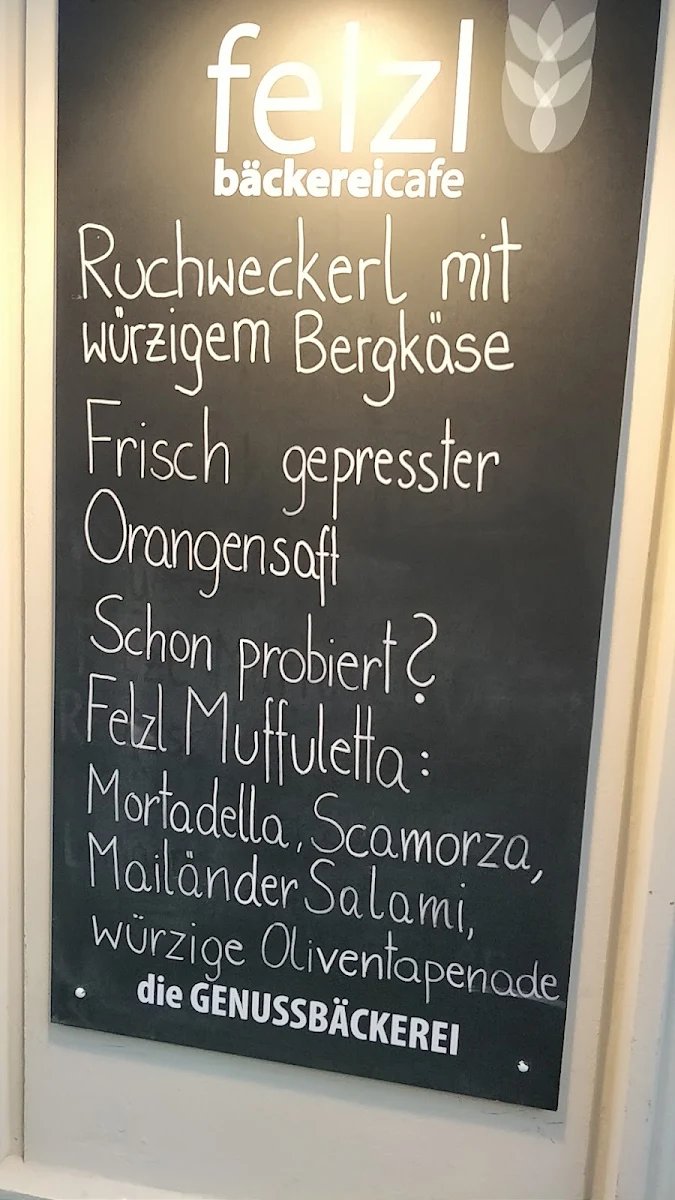 felzl
bäckereicafe
Ruchweckerl mit
würzigem Bergkäse
Frisch gepresster
Orangensaft
Schon probiert?
Felzl Muffuletta:
Mortadella, Scamorza,
Mailänder Salami,
würzige Oliventapenade
die GENUSSBÄCKEREI